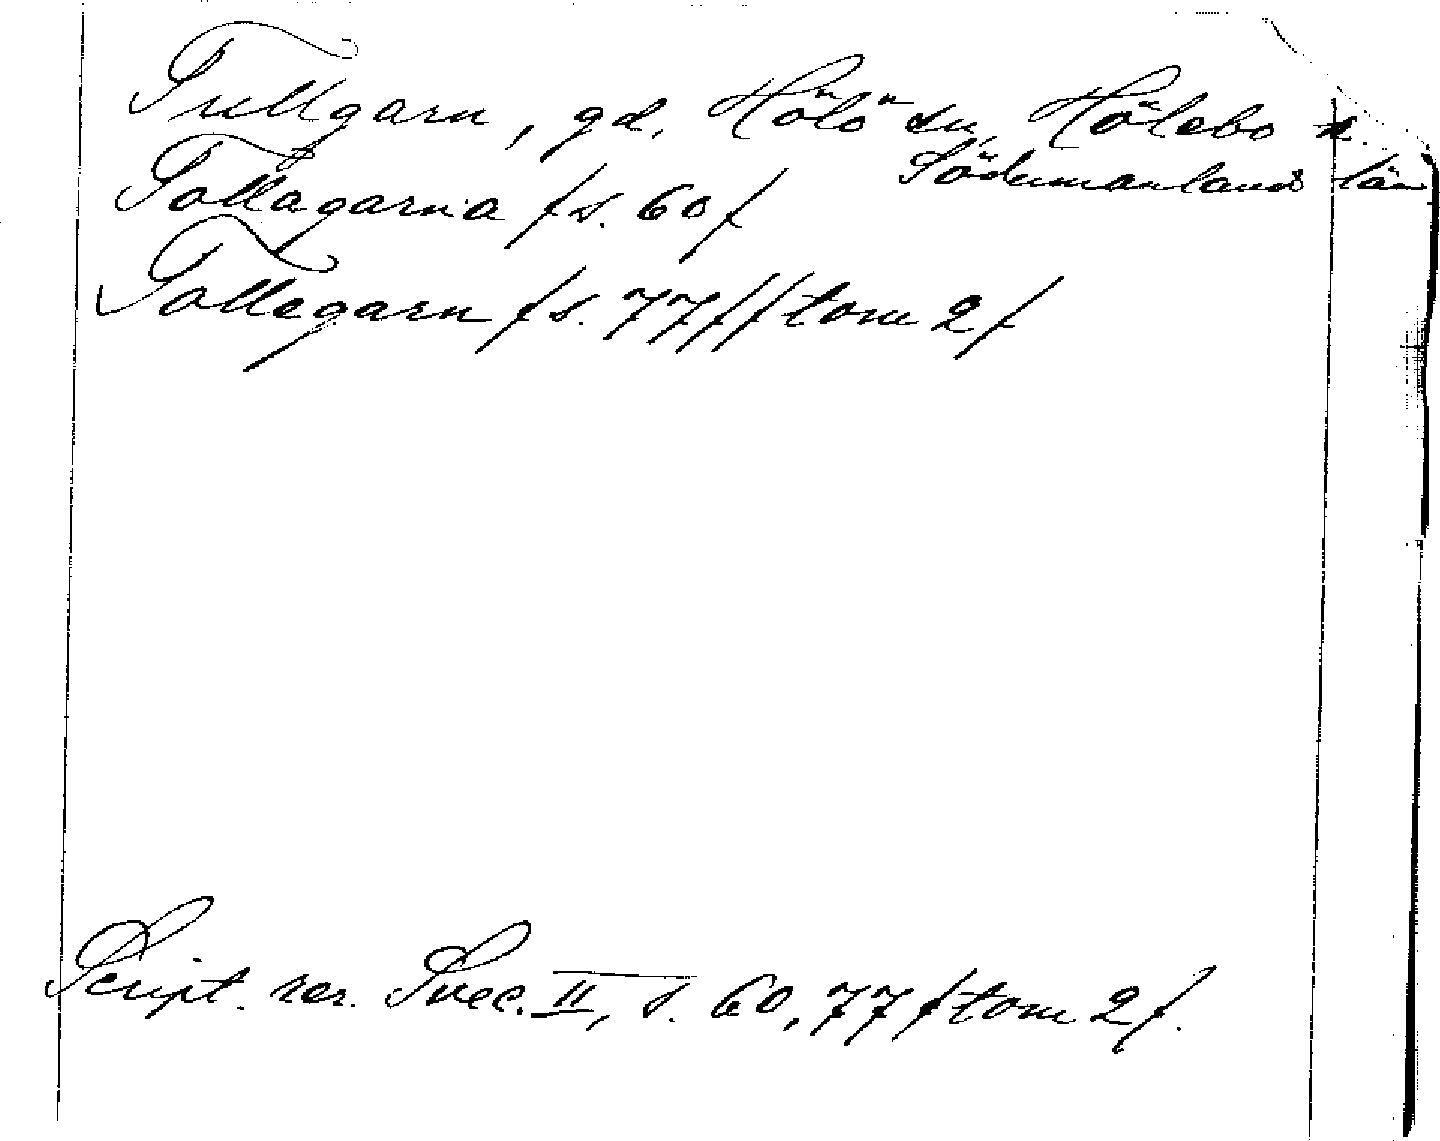 Tullgarn, gd, Hölö sn, Hölebo h.
Södermanland län
Tollagarna /s. 60/
Tollegarn /s. 77/ /tom 2/
Script. rer. Svec. II, s. 60, 77 /tom 2/.